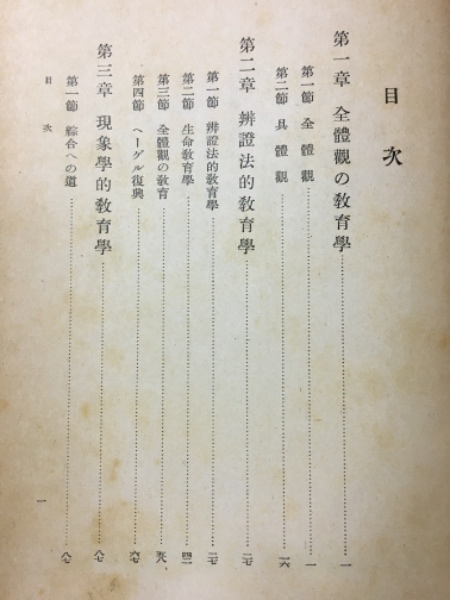 目次
第一章 全體觀の教育學……一
第一節 全體觀……一
第二節 具體觀……一六
第二章 辨證法的教育學……二七
第一節 辨證法的教育學……二七
第二節 生命教育學……四二
第三節 全體觀の教育……五八
第四節 ヘーゲル復興……六七
第三章 現象學的教育學……八七
第一節 綜合への道……八七
目次 一